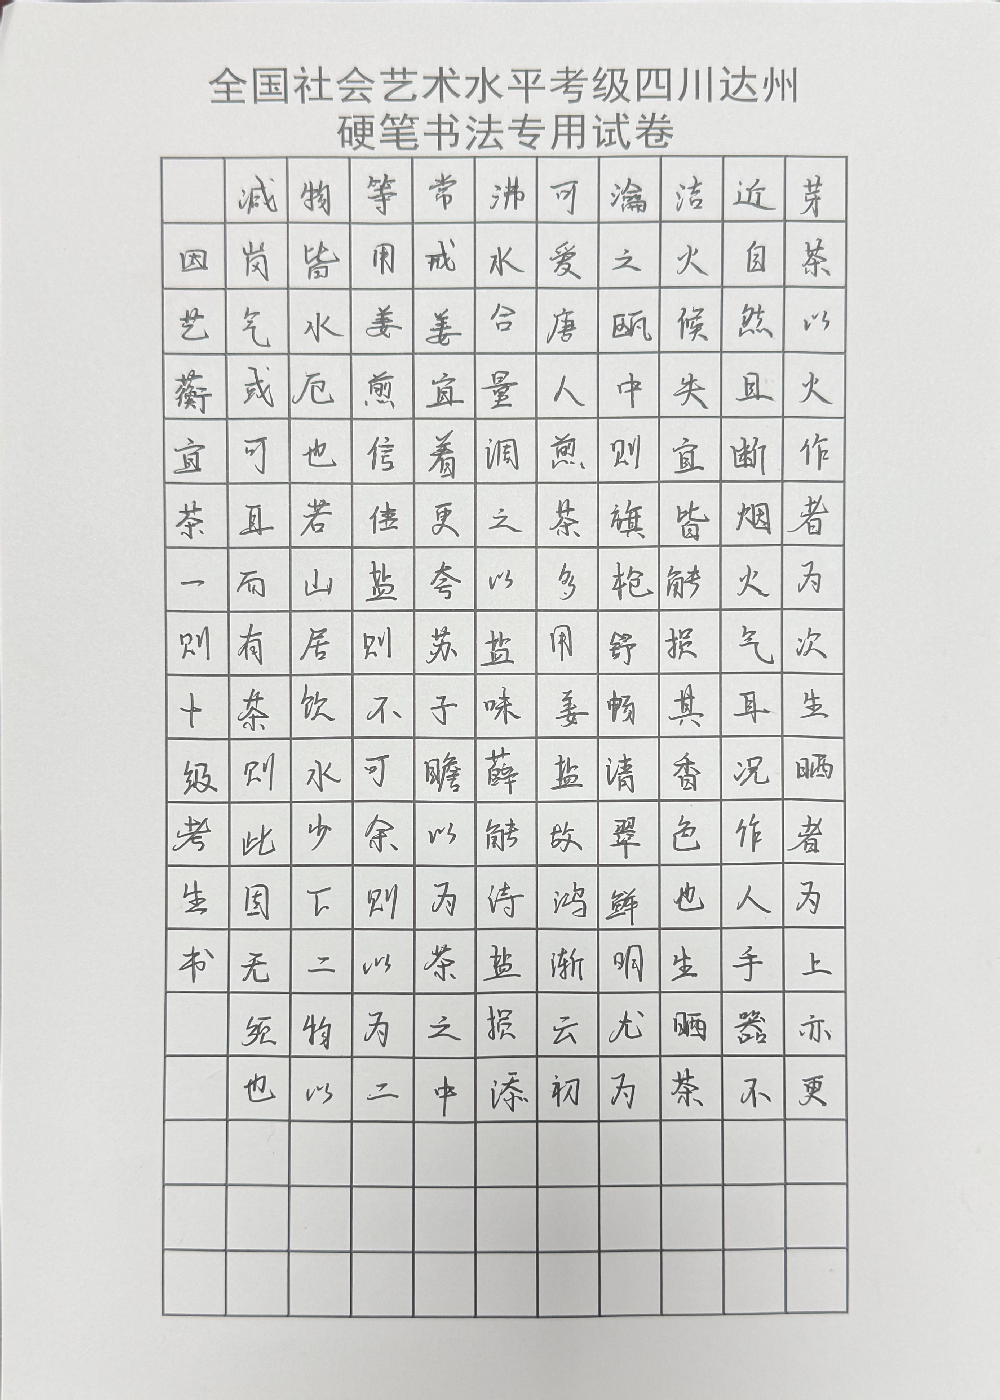 全国社会艺术水平考级四川达州
硬笔书法专用试卷
芽茶以火作者为次生晒者为上亦更
近自然且断烟火气耳况作人手器不
洁火候失宜皆能损其香色也生晒茶
瀹之瓯中则旗枪舒畅清翠鲜明尤为
可爱唐人煎茶多用姜盐故鸿渐云初
沸水合量调之以盐味薛能诗盐损添
常戒姜宜着更夸苏子瞻以为茶之中
等用姜煎信佳盐则不可余则以为二
物皆水厄也若山居饮水少下二物以
减岗气或可耳而有茶则此固无须也
因艺蘅宜茶一则十级考生书